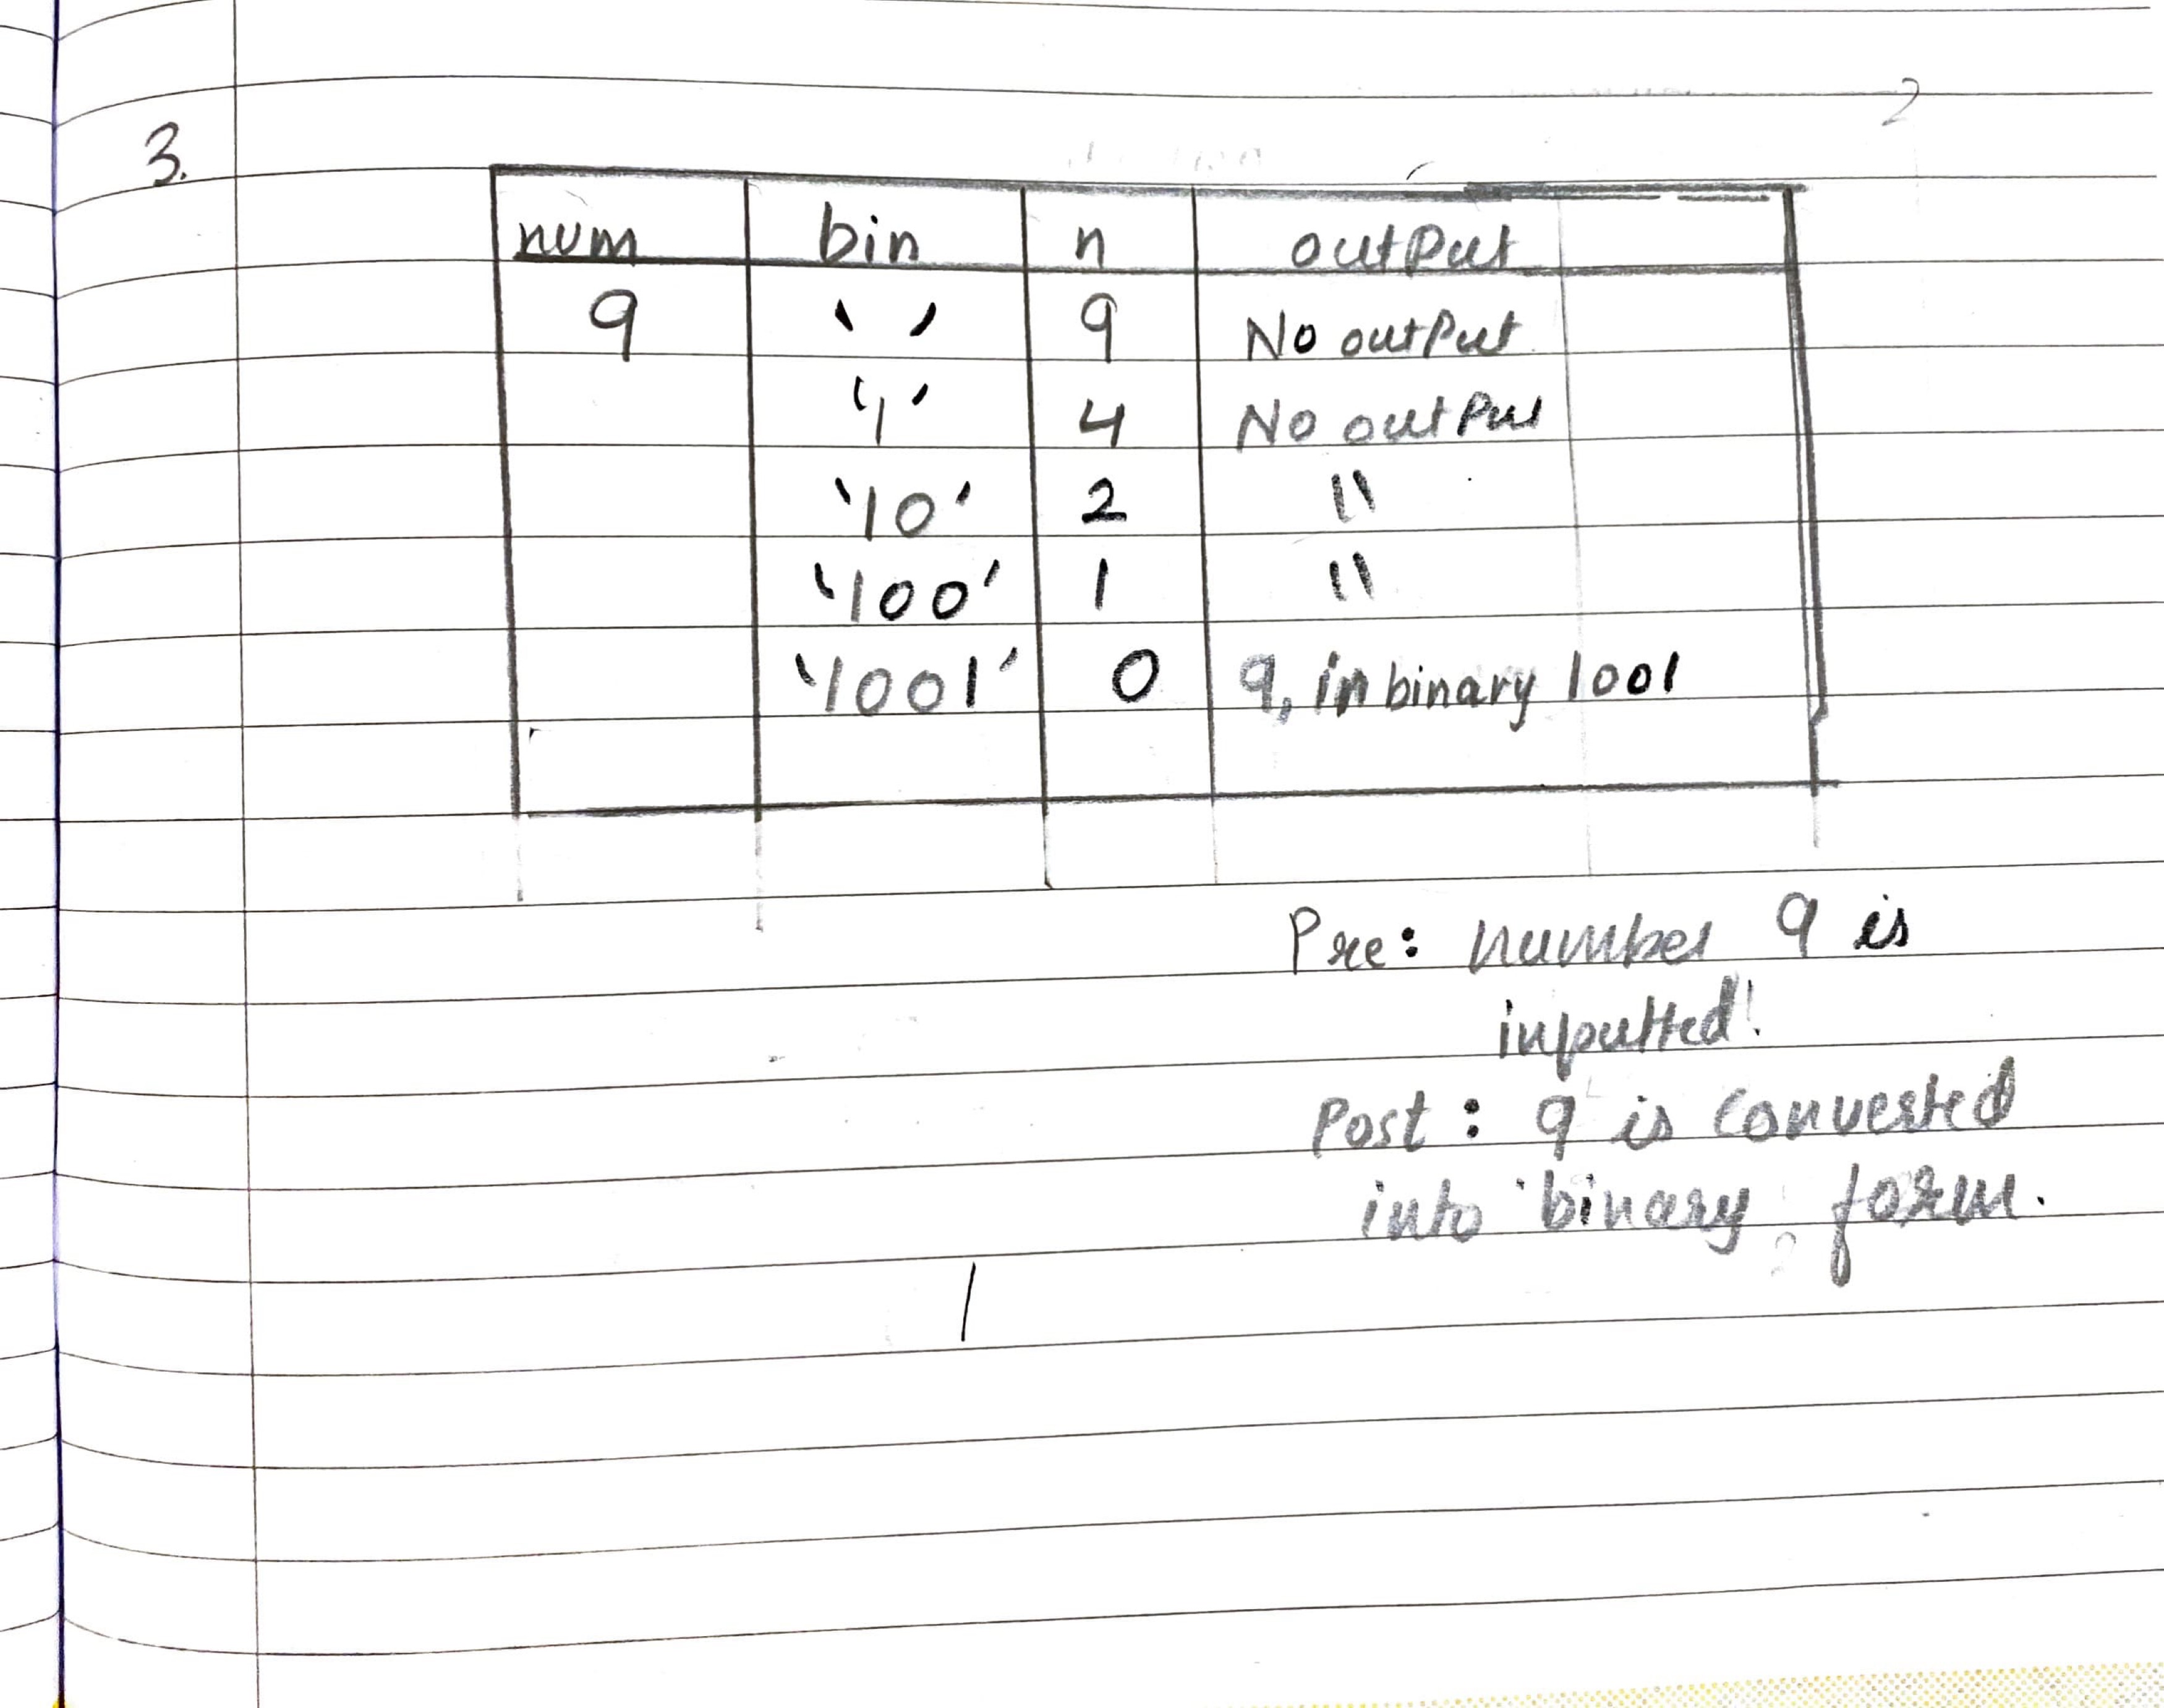 3.
num bin n output
9 ' ' 9 No output
'1' 4 No output
'10' 2 "
'100' 1 "
'1001' 0 9, in binary 1001
Pre: number 9 is
inputted!
Post: 9 is converted
into binary form.